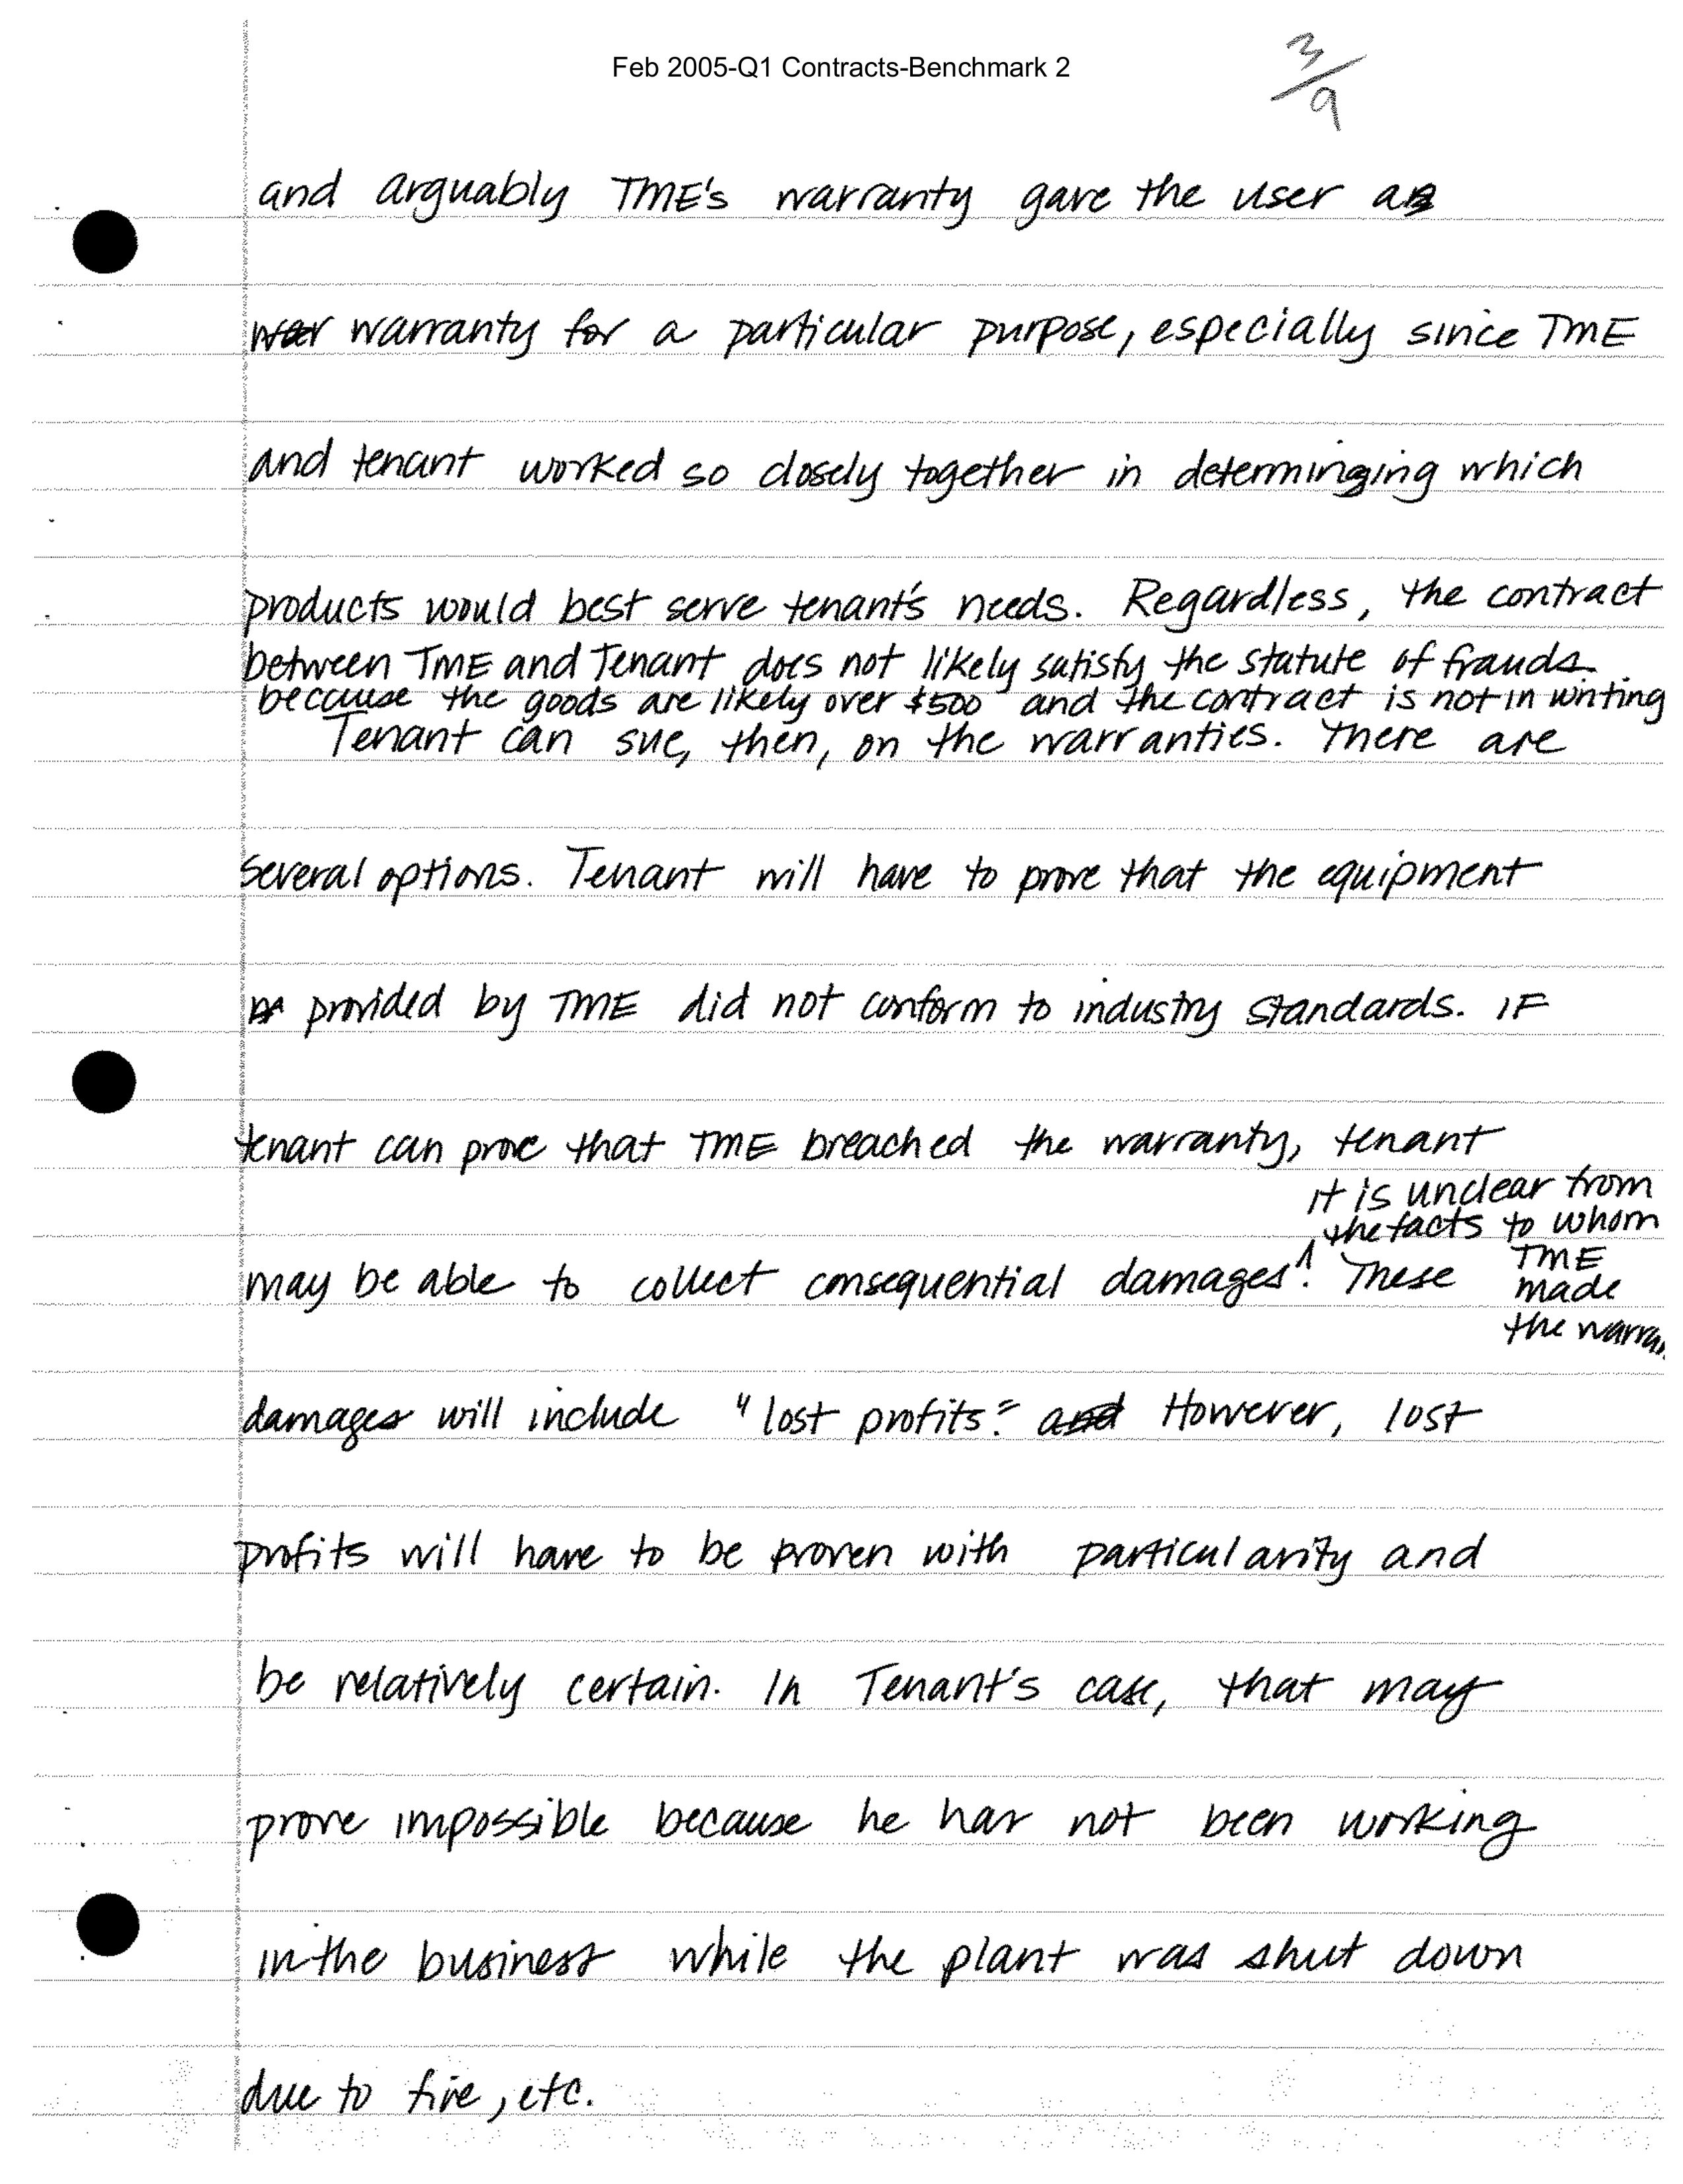 Feb 2005-Q1 Contracts-Benchmark 2
3/9
and arguably TME's warranty gave the user a
war warranty for a particular purpose, especially since TME
and tenant worked so closely together in determinging which
products would best serve tenant's needs. Regardless, the contract
between TME and Tenant does not likely satisfy the statute of frauds.
because the goods are likely over $500 and the contract is not in writing
Tenant can sue, then, on the warranties. There are
several options. Tenant will have to prove that the equipment
provided by TME did not conform to industry standards. IF
tenant can prove that TME breached the warranty, tenant
it is unclear from
the facts to whom
TME
may be able to collect consequential damages^. These
made
the warran
damages will include "lost profits." and However, lost
profits will have to be proven with particularity and
be relatively certain. In Tenant's case, that may
prove impossible because he has not been working
in the business while the plant was shut down
due to fire, etc.